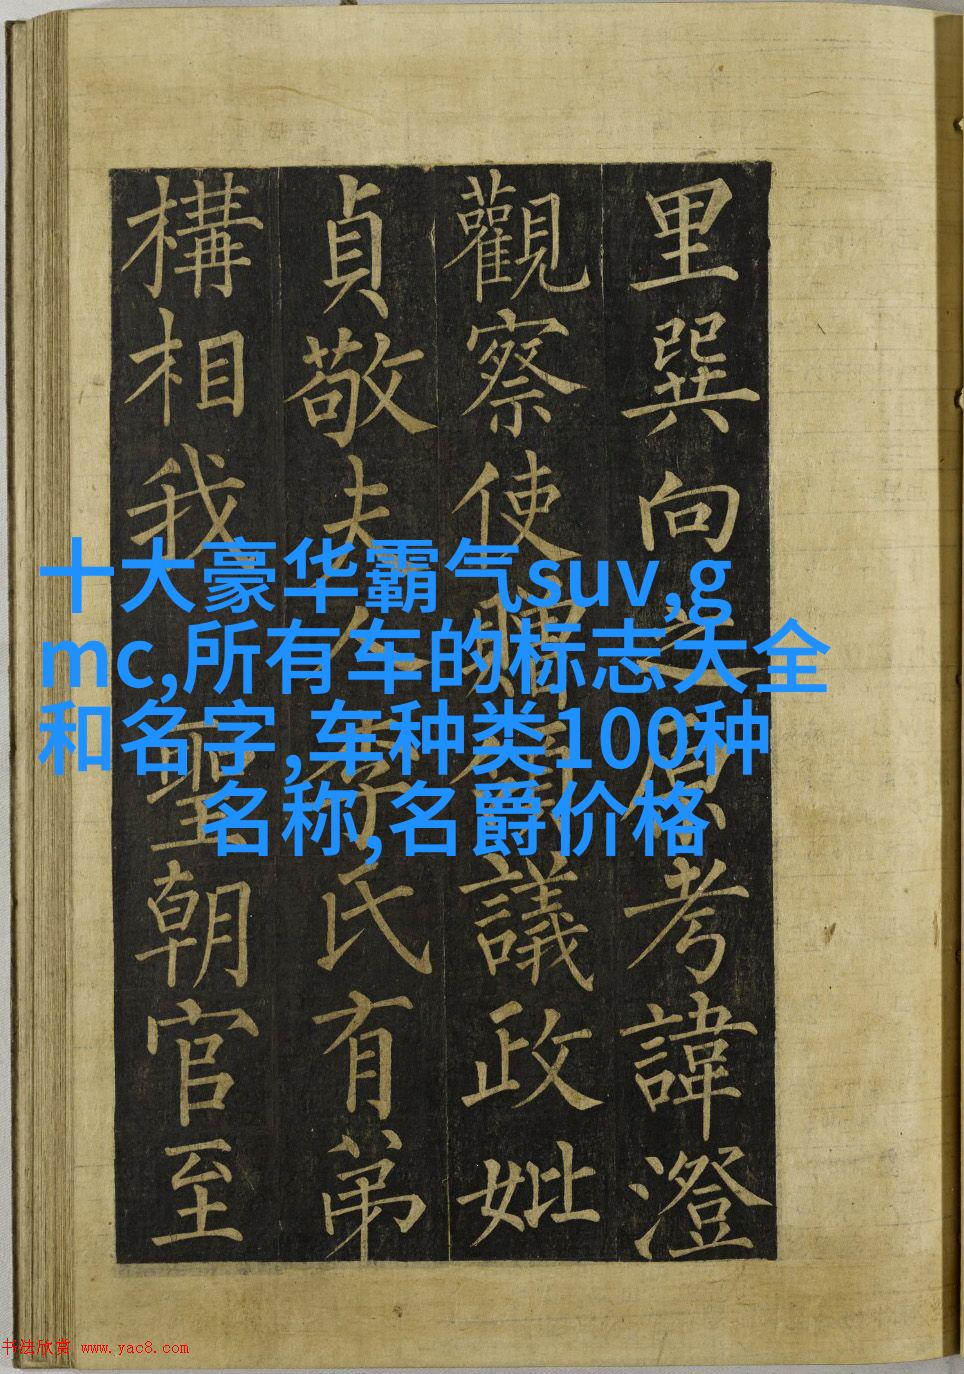 里巽向之原考諱澄
觀察使贈議政妣
貞敬夫人李氏有弟
構相我
聖朝官至
十大豪华霸气suv,g
mc,所有车的标志大全
和名字,车种类100种
名称,名爵价格
书法欣赏 www.yac8.com